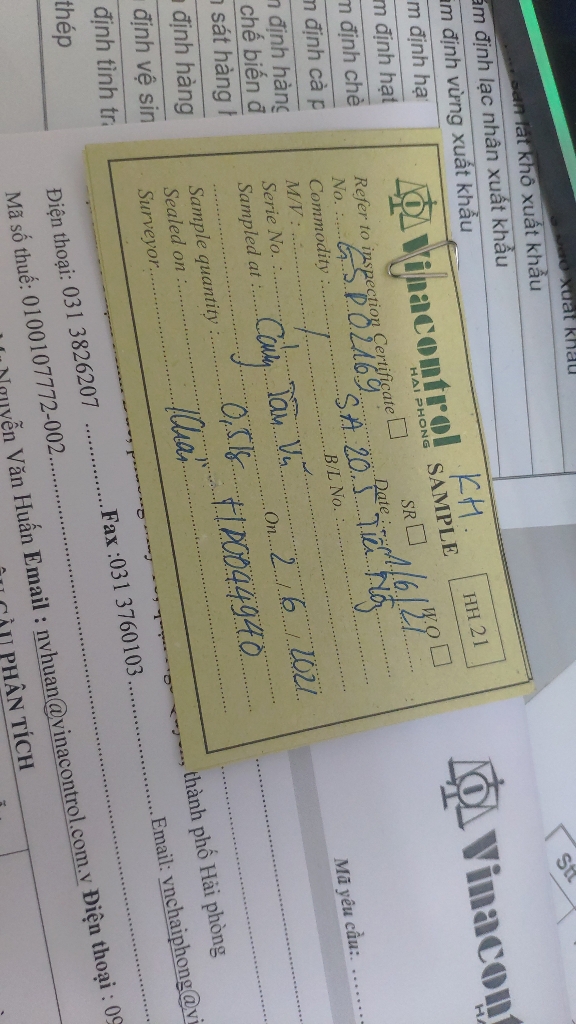 Vinacontrol
HAI PHONG
K.H.
SAMPLE
HH 21
SR
WO
Refer to inspection Certificate
No. : G5P02169
Date : 1/6/21
Commodity : SA 20.5
M/V : /
B/L No. :
Serie No. :
Sampled at : Cảng Tân Vũ
On 2 / 6 / 2021
Sample quantity : 0,5k HP0044940
Sealed on :
Surveyor
sắn lát khô xuất khẩu
ám định lạc nhân xuất khẩu
ám định vừng xuất khẩu
m định hạ
m định hạt
m định chè
m định cà p
n định hàng
chế biến đ
n sát hàng
định hàng
định vệ sin
định tình tr
thép
Vinacon
Mã yêu cầu:
thành phố Hải phòng
Điện thoại: 031 3826207
Fax :031 3760103
Email: vnchaiphong@vi
Mã số thuế: 0100107772-002
Nguyễn Văn Huấn Email : nvhuan@vinacontrol.com.v Điện thoại : 09
CẦU PHÂN TÍCH
Stt